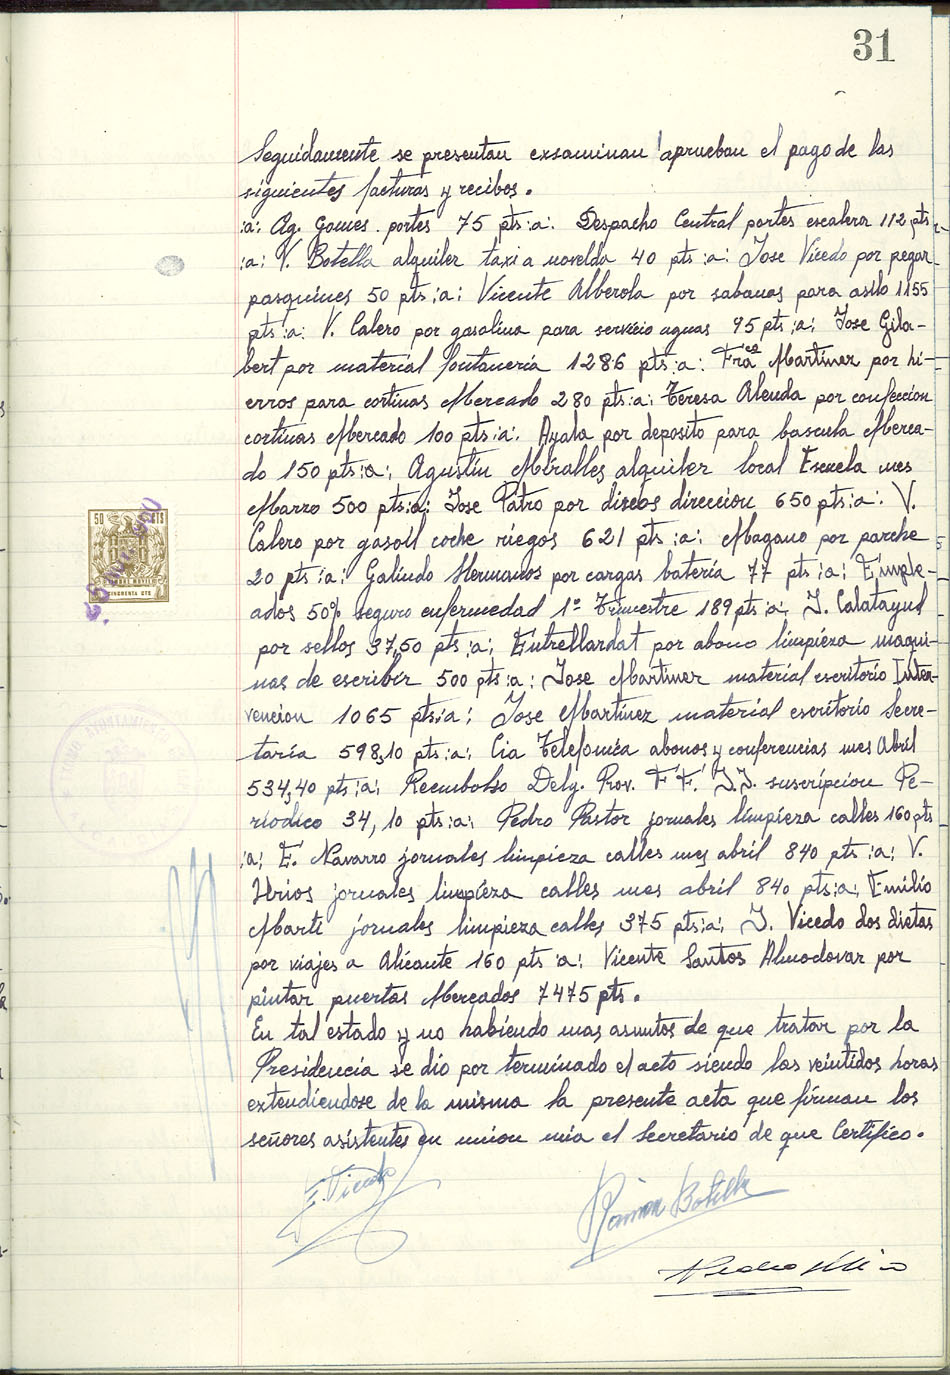 31
Seguidamente se presentan exsaminan aprueban el pago de las
siguientes facturas y recibos.
:a: Ag. Gomes portes 75 pts :a: Despacho Central portes escalera 112 pts
:a: V. Botella alquiler taxi a novelda 40 pts :a: Jose Vicedo por pegar
pasquines 50 pts :a: Vicente Alberola por sabanas para asilo 1155
pts :a: V. Calero por gasolina para servicio aguas 95 pts :a: Jose Gila-
bert por material fontaneria 1286 pts :a: Fraco Martinez por hi-
erros para cortinas Mercado 280 pts :a: Teresa Alenda por confeccion
cortinas Mercado 100 pts :a: Ayala por deposito para bascula Merca-
do 150 pts :a: Agustin Miralles alquiler local Escuela mes
Marzo 500 pts :a: Jose Patro por discos direccion 650 pts :a: V.
Calero por gasoil coche riegos 621 pts :a: Magano por parche
20 pts :a: Galindo Hermanos por cargas bateria 77 pts :a: Emple-
ados 50% seguro enfermedad 1º Trimestre 189 pts :a: J. Calatayud
por sellos 37,50 pts :a: Entrellardat por abono limpieza maqui-
nas de escribir 500 pts :a: Jose Martinez material escritorio Inter-
vencion 1065 pts :a: Jose Martinez material escritorio Secre-
taria 598,10 pts :a: Cia Telefonica abonos y conferencias mes Abril
534,40 pts :a: Reembolso Delg. Prov. F.F. J.J. suscripcion Pe-
riodico 34,10 pts :a: Pedro Pastor jornales limpieza calles 160 pts
:a: E. Navarro jornales limpieza calles mes abril 840 pts :a: V.
Urios jornales limpieza calles mes abril 840 pts :a: Emilio
Marti jornales limpieza calles 375 pts :a: J. Vicedo dos dietas
por viajes a Alicante 160 pts :a: Vicente Santos Almodovar por
pintar puertas Mercados 7475 pts.
En tal estado y no habiendo mas asuntos de que tratar por la
Presidencia se dio por terminado el acto siendo las veintidos horas
extendiendose de la misma la presente acta que firman los
señores asistentes en union mia el Secretario de que Certifico.
50 CTS
MOVIL
CINCUENTA CTS
AYUNTAMIENTO
Ramon Botella